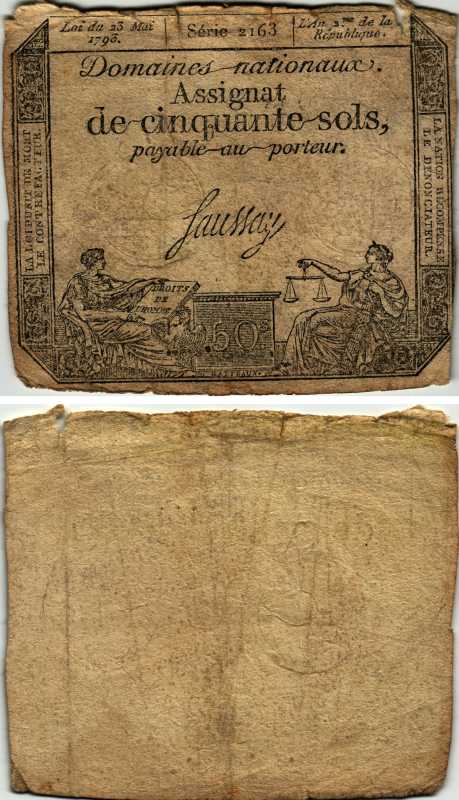 Loi du 23 Mai
1793.
Série 2163
L'An 2.me de la
République.
Domaines nationaux.
Assignat
de cinquante sols,
payable au porteur.
LA LOI PUNIT DE MORT
LE CONTREFACTEUR.
LA NATION RÉCOMPENSE
LE DÉNONCIATEUR.
Saussay
DROITS
DE
L'HOMME
50s